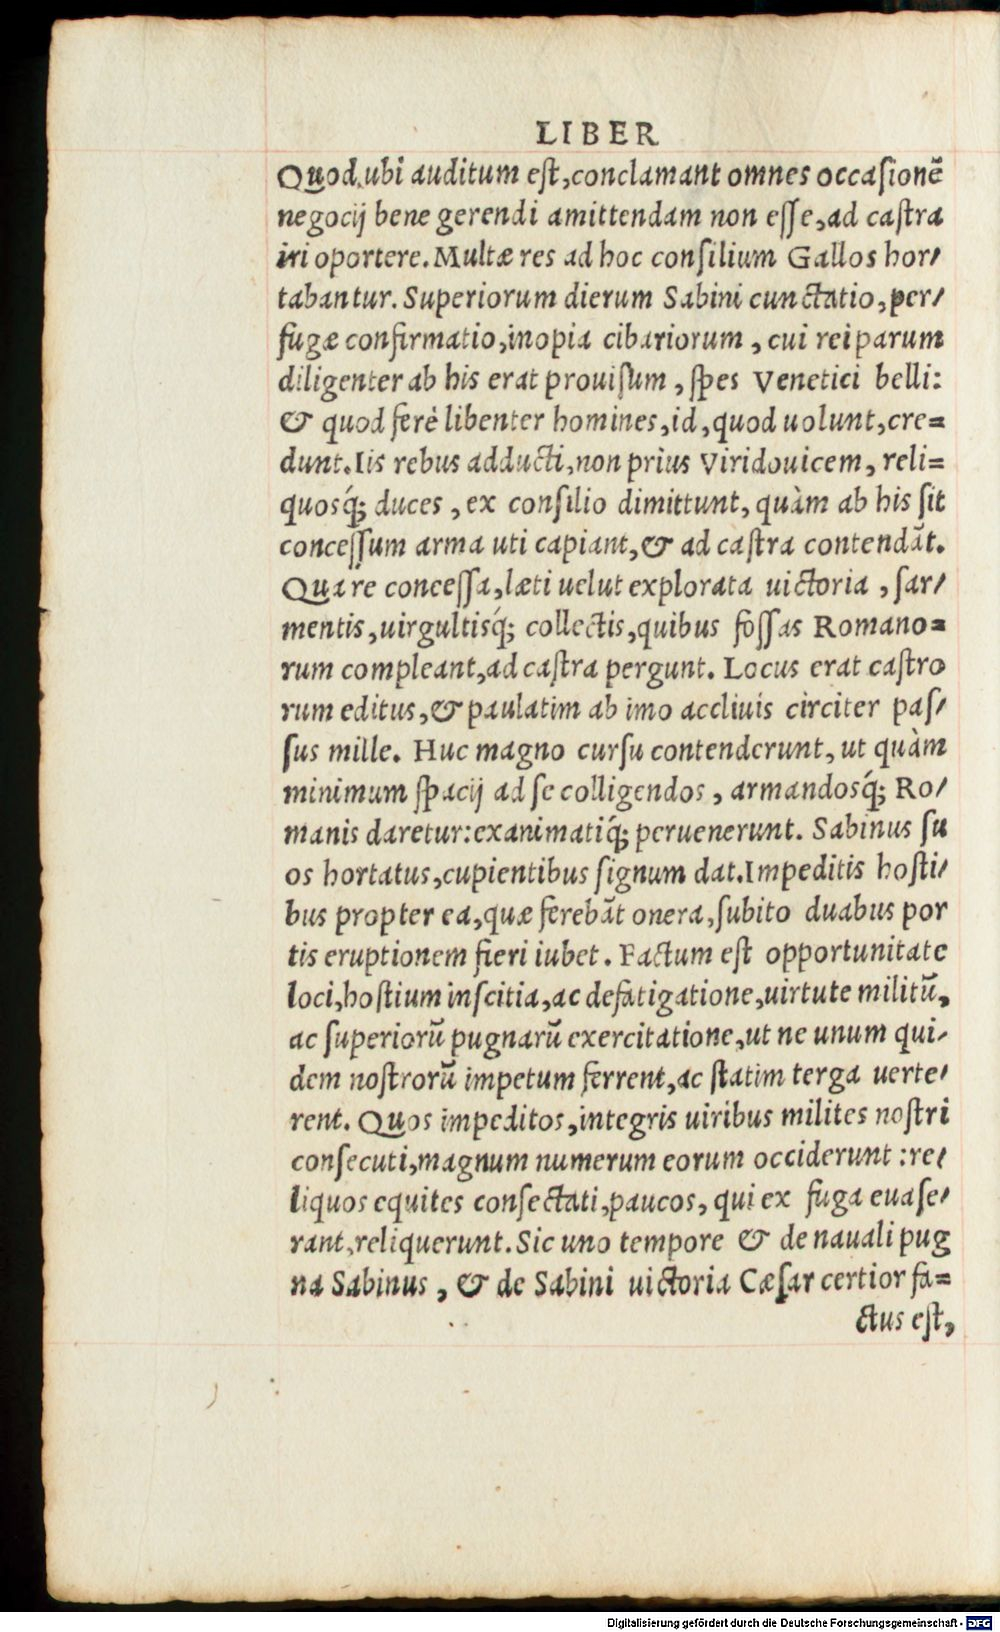 LIBER
Quod ubi auditum eſt,conclamant omnes occaſionẽ
negocij bene gerendi amittendam non eſſe,ad caſtra
iri oportere.Multæ res ad hoc conſilium Gallos hor/
tabantur.Superiorum dierum Sabini cunctatio,per/
fugæ confirmatio,inopia cibariorum , cui rei parum
diligenter ab his erat prouiſum , ſpes Venetici belli:
& quod ferè libenter homines,id,quod uolunt,cre=
dunt.Iis rebus adducti,non prius Viridouicem, reli=
quosq́; duces , ex conſilio dimittunt, quàm ab his ſit
conceſſum arma uti capiant,& ad caſtra contendãt.
Qua re conceſſa,læti uelut explorata uictoria , ſar/
mentis,uirgultisq́; collectis,quibus foſſas Romano=
rum compleant,ad caſtra pergunt. Locus erat caſtro
rum editus,& paulatim ab imo accliuis circiter paſ/
ſus mille. Huc magno curſu contenderunt, ut quàm
minimum ſpacij ad ſe colligendos , armandosq́; Ro/
manis daretur:exanimatiq́; peruenerunt. Sabinus ſu
os hortatus,cupientibus ſignum dat.Impeditis hoſti/
bus propter ea,quæ ferebãt onera,ſubito duabus por
tis eruptionem fieri iubet. Factum eſt opportunitate
loci,hoſtium inſcitia,ac defatigatione,uirtute militũ,
ac ſuperiorũ pugnarũ exercitatione,ut ne unum qui/
dem noſtrorũ impetum ferrent,ac ſtatim terga uerte/
rent. Quos impeditos,integris uiribus milites noſtri
conſecuti,magnum numerum eorum occiderunt :re/
liquos equites conſectati,paucos, qui ex fuga euaſe/
rant,reliquerunt.Sic uno tempore & de nauali pug
na Sabinus , & de Sabini uictoria Cæſar certior fa=
ctus eſt,
Digitalisierung gefördert durch die Deutsche Forschungsgemeinschaft - DFG